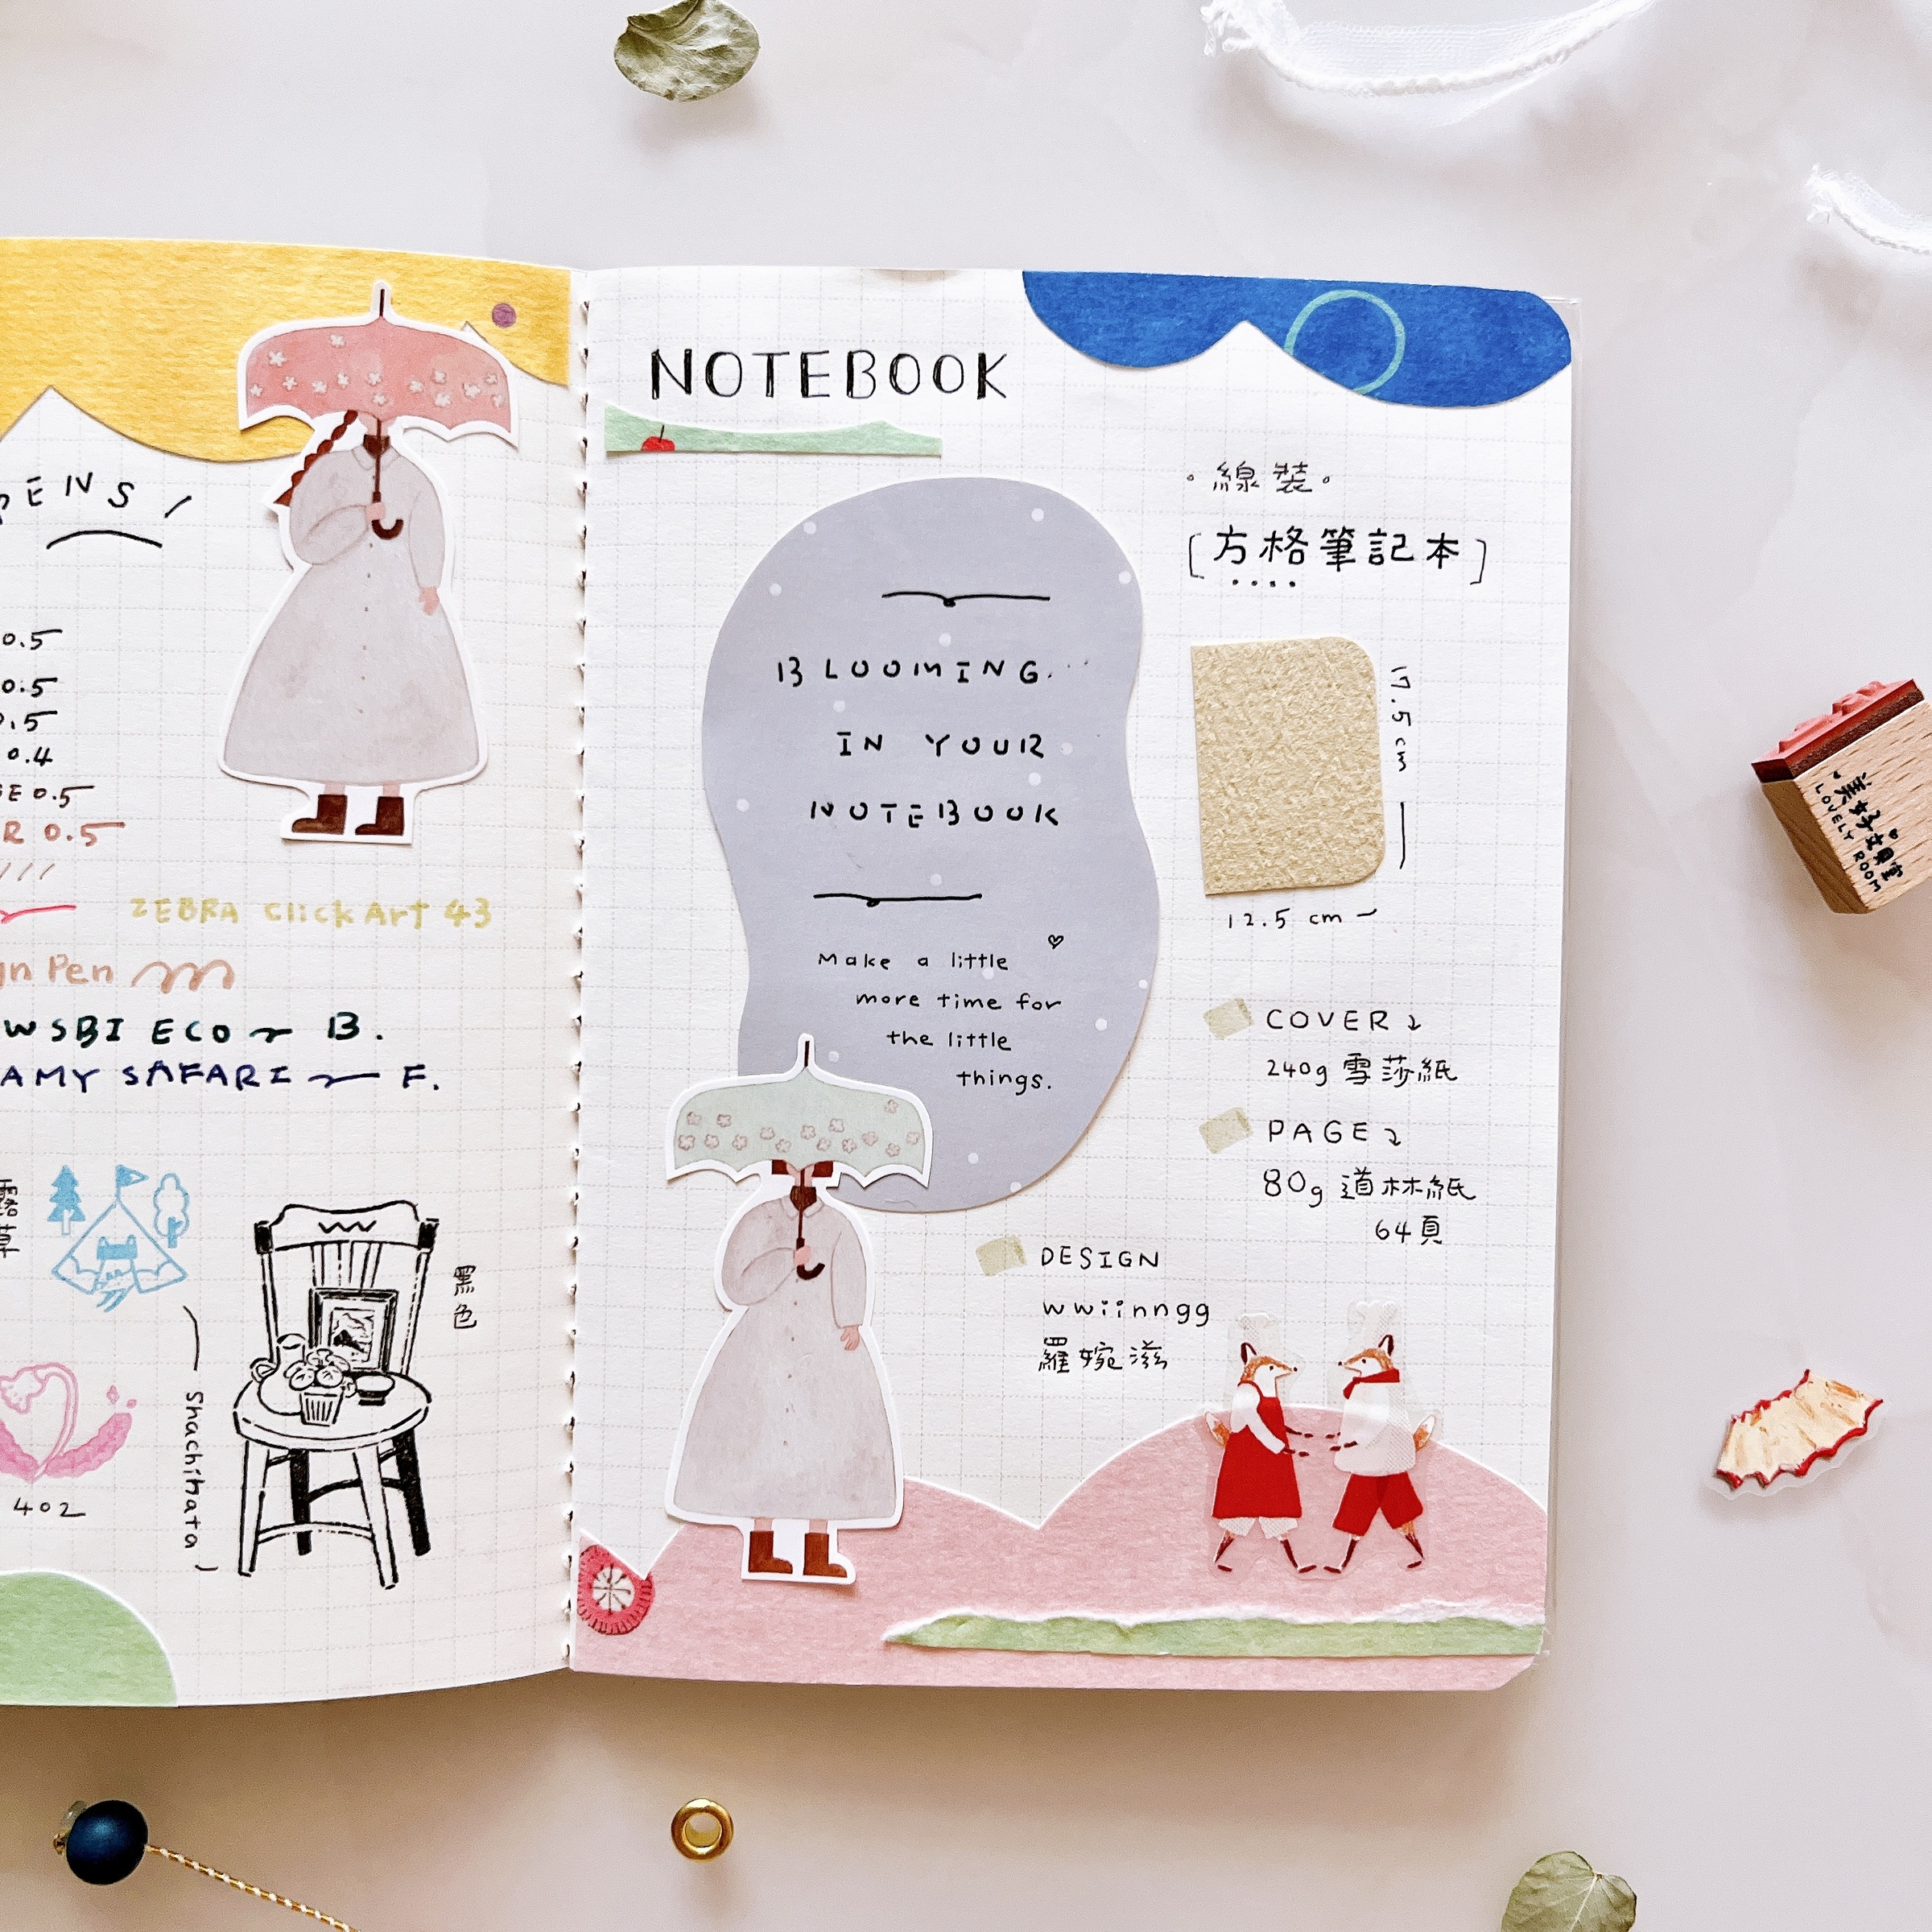 PENS
0.5
0.5
0.5
0.4
0.5
R 0.5
ZEBRA Click Art 43
Pen
TWSBI ECO B.
LAMY SAFARI F.
黑色
Shachihata
402
NOTEBOOK
BLOOMING
IN YOUR
NOTEBOOK
Make a little
more time for
the little
things.
線裝
[方格筆記本]
17.5 cm
12.5 cm
COVER
240g 雪莎紙
PAGE
80g 道林紙
64頁
DESIGN
wwiinngg
羅婉滋
美好文具室
LOVELY ROOM